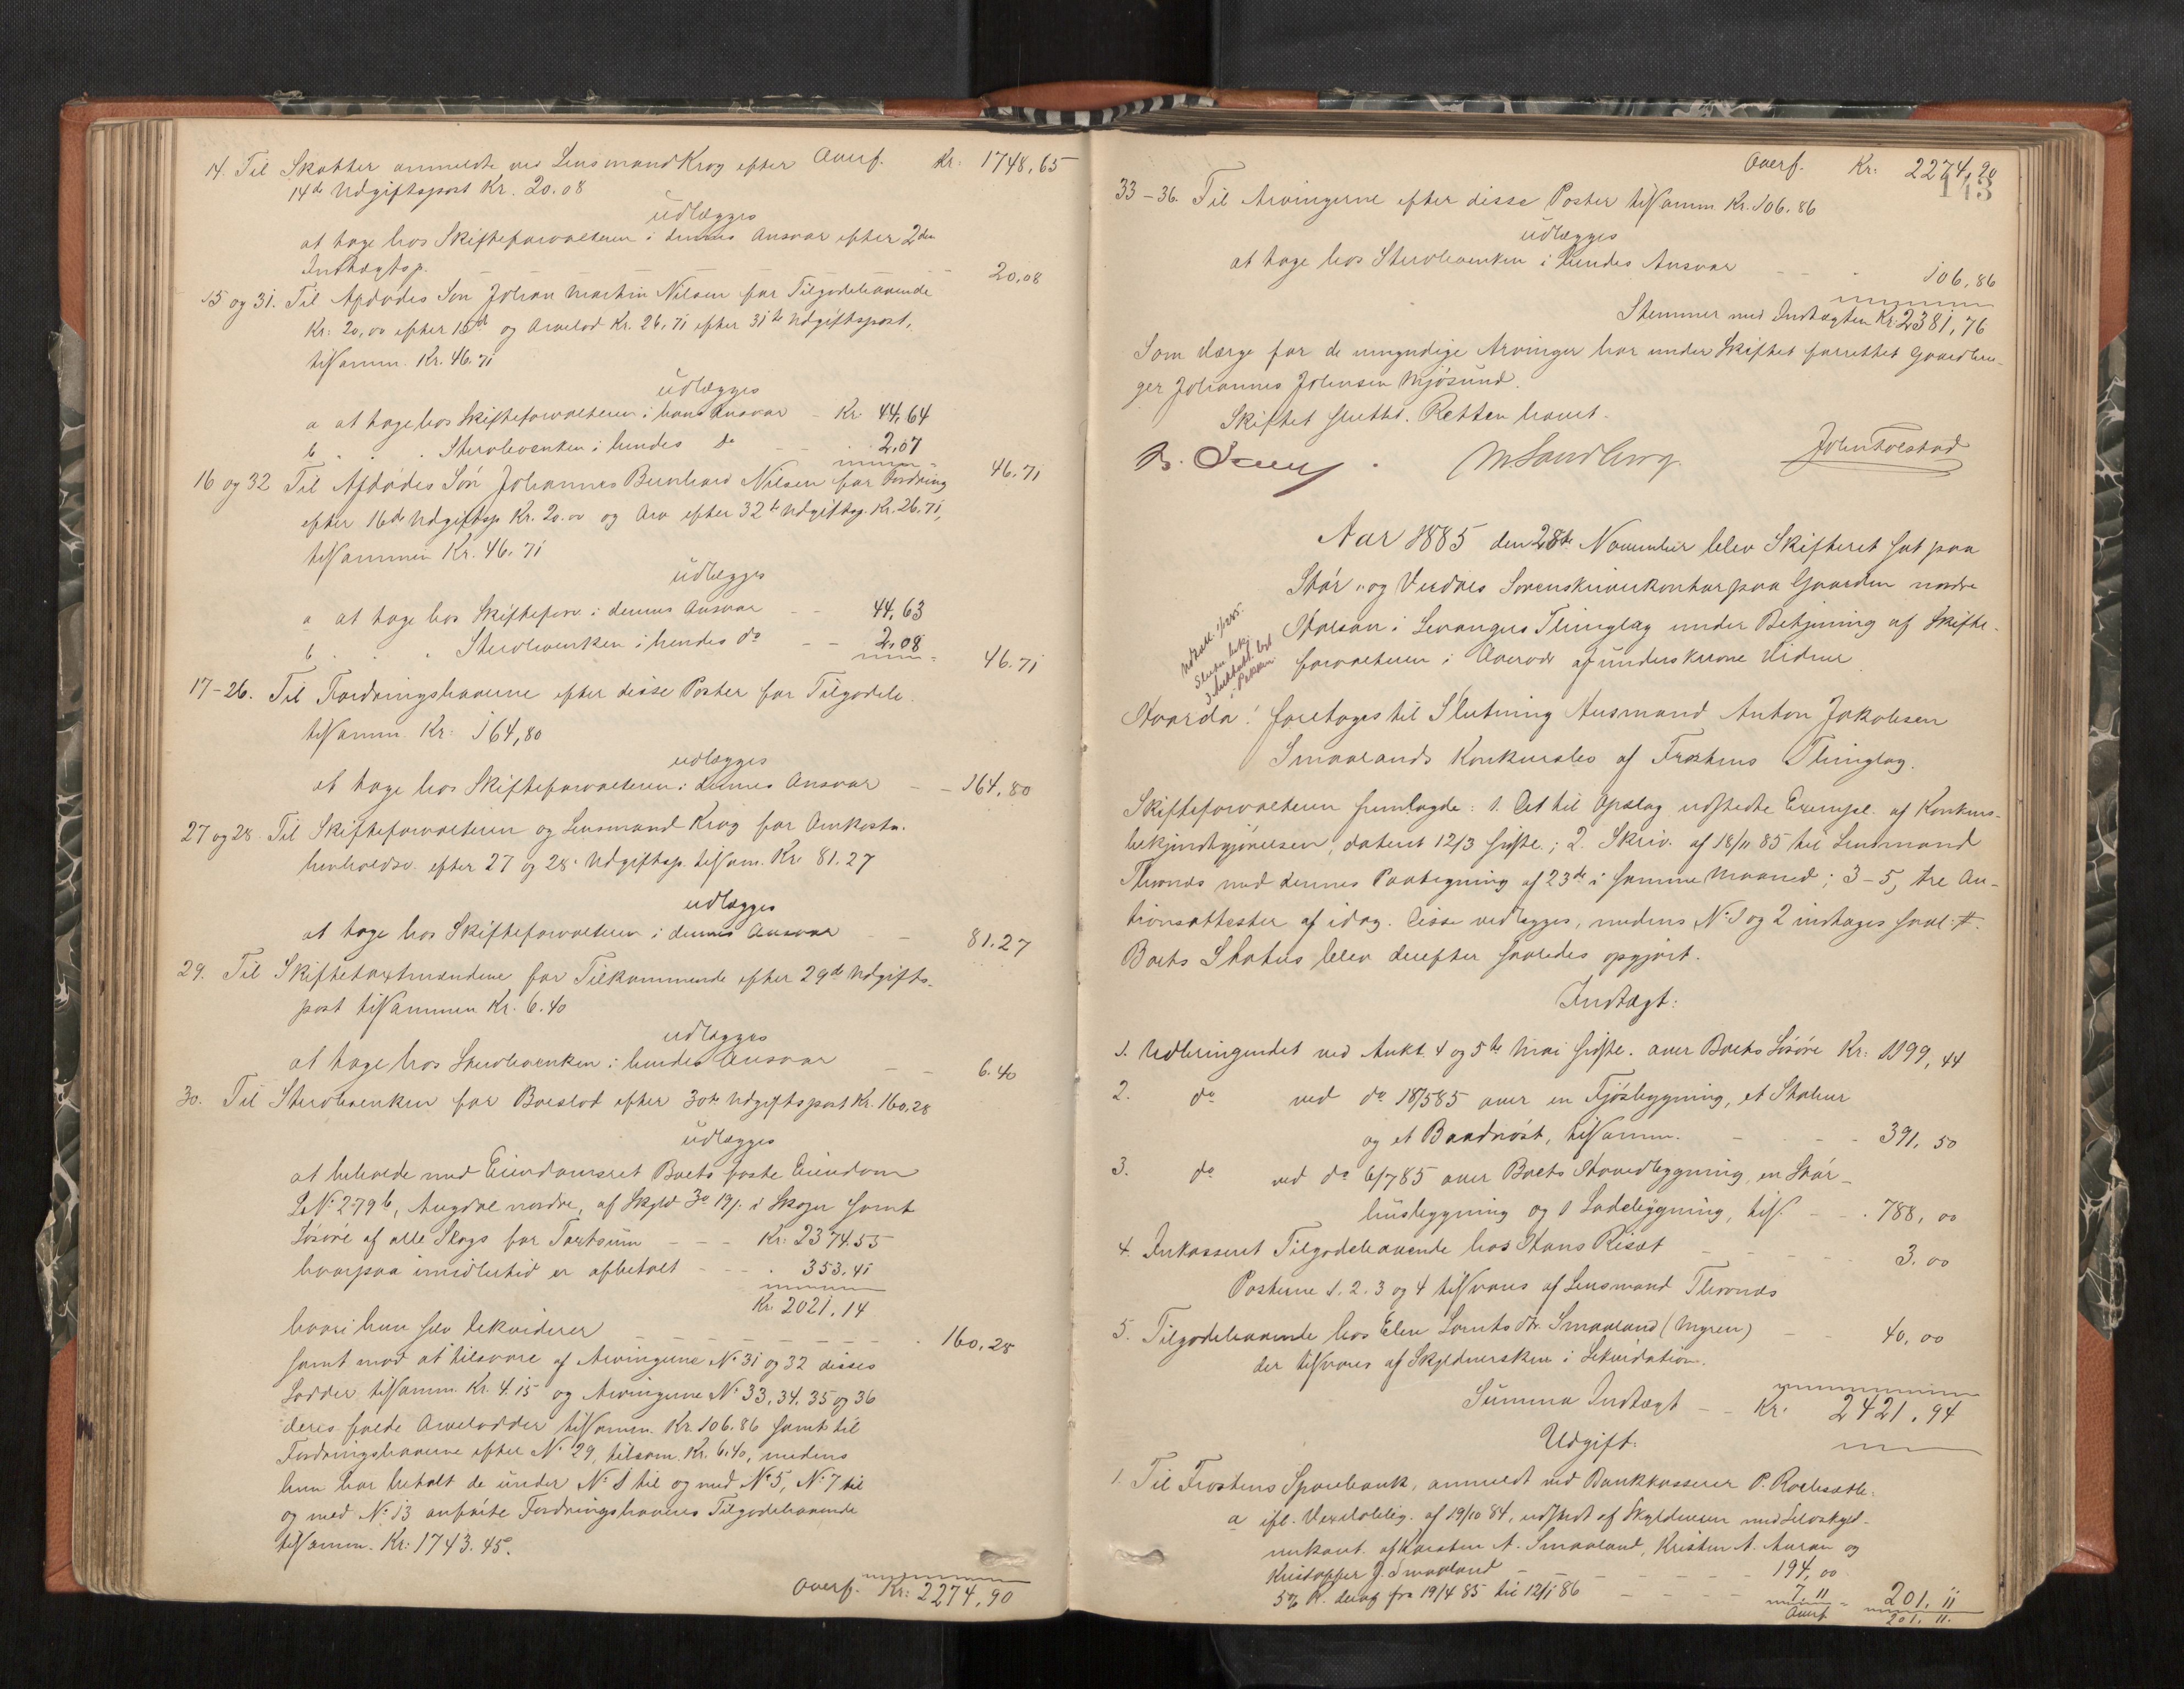 14. Til Skatter anmeldte ved Lensmand Krog efter Overf. Kr: 1748,65
14de Udgiftspost Kr. 20.08
udlægges
at tage hos Skifteforvalteren i dennes Ansvar efter 2den
Indtægtsp. 20,08
15 og 31. Til Afdødes Søn Johan Martin Nilsen for Tilgodehavende
Kr: 20,00 efter 15de og Arvelod Kr. 26,71 efter 31te Udgiftspost,
tilsamm. Kr. 46.71
udlægges
a at tage hos Skifteforvalteren i hans Ansvar - Kr. 44,64
b " " Sterboenken i hendes do - - 2,07
46.71
16 og 32 Til Afdødes Søn Johannes Bernhard Nilsen for Fordring
efter 16de Udgiftsp. Kr. 20.00 og Arv efter 32te Udgiftsp. Kr. 26.71,
tilsammen Kr. 46.71
udlægges
a at tage hos Skifteforv. i dennes Ansvar - - 44,63
b " " Sterboenken i hendes do - - 2,08
46.71
17-26. Til Fordringshaverne efter disse Poster for Tilgodeh.
tilsamm. Kr: 164,80
udlægges
at tage hos Skifteforvalteren i dennes Ansvar - - 164,80
27 og 28. Til Skifteforvalteren og Lensmand Krog for Omkostn.
henholdsv. efter 27 og 28. Udgiftsp. tilsam. Kr. 81.27
udlægges
at tage hos Skifteforvalteren i dennes Ansvar - - 81.27
29. Til Skiftetaxtmændene for Tilkommende efter 29de Udgifts-
post tilsammen Kr. 6.40
udlægges
at tage hos Sterboenken i hendes Ansvar - - 6.40
30. Til Sterboenken for Boeslod efter 30te Udgiftspost Kr. 160,28
udlægges
at beholde med Eiendomsret Boets faste Eiendom
L.No 279b, Augdal nordre, af Skyld 3o 19/. i Skogn samt
Løsøre af alle Slags for Taxtsum - - - Kr: 2374.55
hvorpaa imidlertid er afbetalt - - - 353.41
Kr. 2021.14
hvori hun selv likviderer - - - 160,28
samt mod at tilsvare af Arvingerne No 31 og 32 disses
Lodder tilsamm. Kr. 4.15 og Arvingerne No 33, 34, 35 og 36
deres fulde Arvelodder tilsamm. Kr. 106.86 samt til
Fordringshaverne efter No 29, tilsam. Kr. 6.40, medens
hun har betalt de under No 1 til og med No 5, No 7 til
og med No 13 anførte Fordringshaveres Tilgodehavende
tilsamm. Kr: 1743.45.
Overf. Kr: 2274,90
Overf. Kr: 2274,90
113
33-36. Til Arvingerne efter disse Poster tilsamm. Kr. 106.86
udlægges
at tage hos Sterboenken i hendes Ansvar - - 106,86
Stemmer med Indtægten Kr: 2381,76
Som Værge for de umyndige Arvinger har under Skiftet forrettet Gaardbru-
ger Johannes Johnsen Mjøsund.
Skiftet sluttet. Retten hævet.
M Sandberg. John Tolstad
Aar 1885 den 28de November blev Skifteret sat paa
Stør- og Verdals Sorenskriverkontor paa Gaarden nordre
Halsan i Levangers Thinglag under Betjening af Skifte-
forvalteren i Overvær af underskrevne Vidner
Hvorda: foretoges til Slutning Husmand Anton Jakobsen
Smaalands Konkursbo af Frostens Thinglag.
Skifteforvalteren fremlagde: 1. Det til Opslag udstedte Exempl. af Konkurs-
bekjendtgjørelsen, dateret 12/3 sidstl.; 2. Skriv. af 18/11 85 til Lensmand
Thronæs med dennes Paategning af 23de i samme Maaned; 3-5, tre Au-
tionsattester af idag. Disse vedlægges, medens No 1 og 2 indtages saal: #.
Boets Status blev derefter saaledes opgjort.
Indtægt:
1. Udbringendet ved Aukt. 4 og 5te Mai sidstl. over Boets Løsøre Kr: 1199,44
2. do ved do 18/5 85 over en Fjøsbygning, et Stabur
og et Baadnøst, tilsamm. - - - 391,50
3. do ved do 6/7 85 over Boets Hovedbygning, en Skår-
husbygning og 1 Ladebygning, tils. - - 788,00
4. Inkasseret Tilgodehavende hos Hans Risøt - - - 3.00
Posterne 1. 2. 3 og 4 tilsvares af Lensmand Thronæs
5. Tilgodehavende hos Elen Lorntsdtr. Smaaland (Myren) - - 40,00
der tilsvares af Skyldnersken i Likvidation.
Summa Indtægt - - Kr: 2421.94
Udgift.
1. Til Frostens Sparebank, anmeldt ved Bankkasserer P. Rochsæth.
a ifl. Vexeloblig. af 19/10 84, udstedt af Skyldneren med Selvskyld-
nerkaut. af Karsten A. Smaaland, Kristen A. Auran og
Kristoffer J. Smaaland - - - 194,00
5% R. deraf fra 19/4 85 til 12/1 86 - - - 7.11 - 201.11
Overf. 201.11.